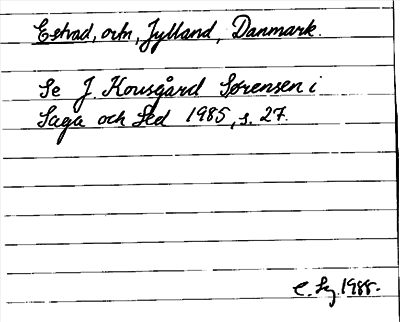 Estrad, ortn, Jylland, Danmark.
Se J. Kousgård Sørensen i
Saga och Sed 1985, s. 27.
1988.